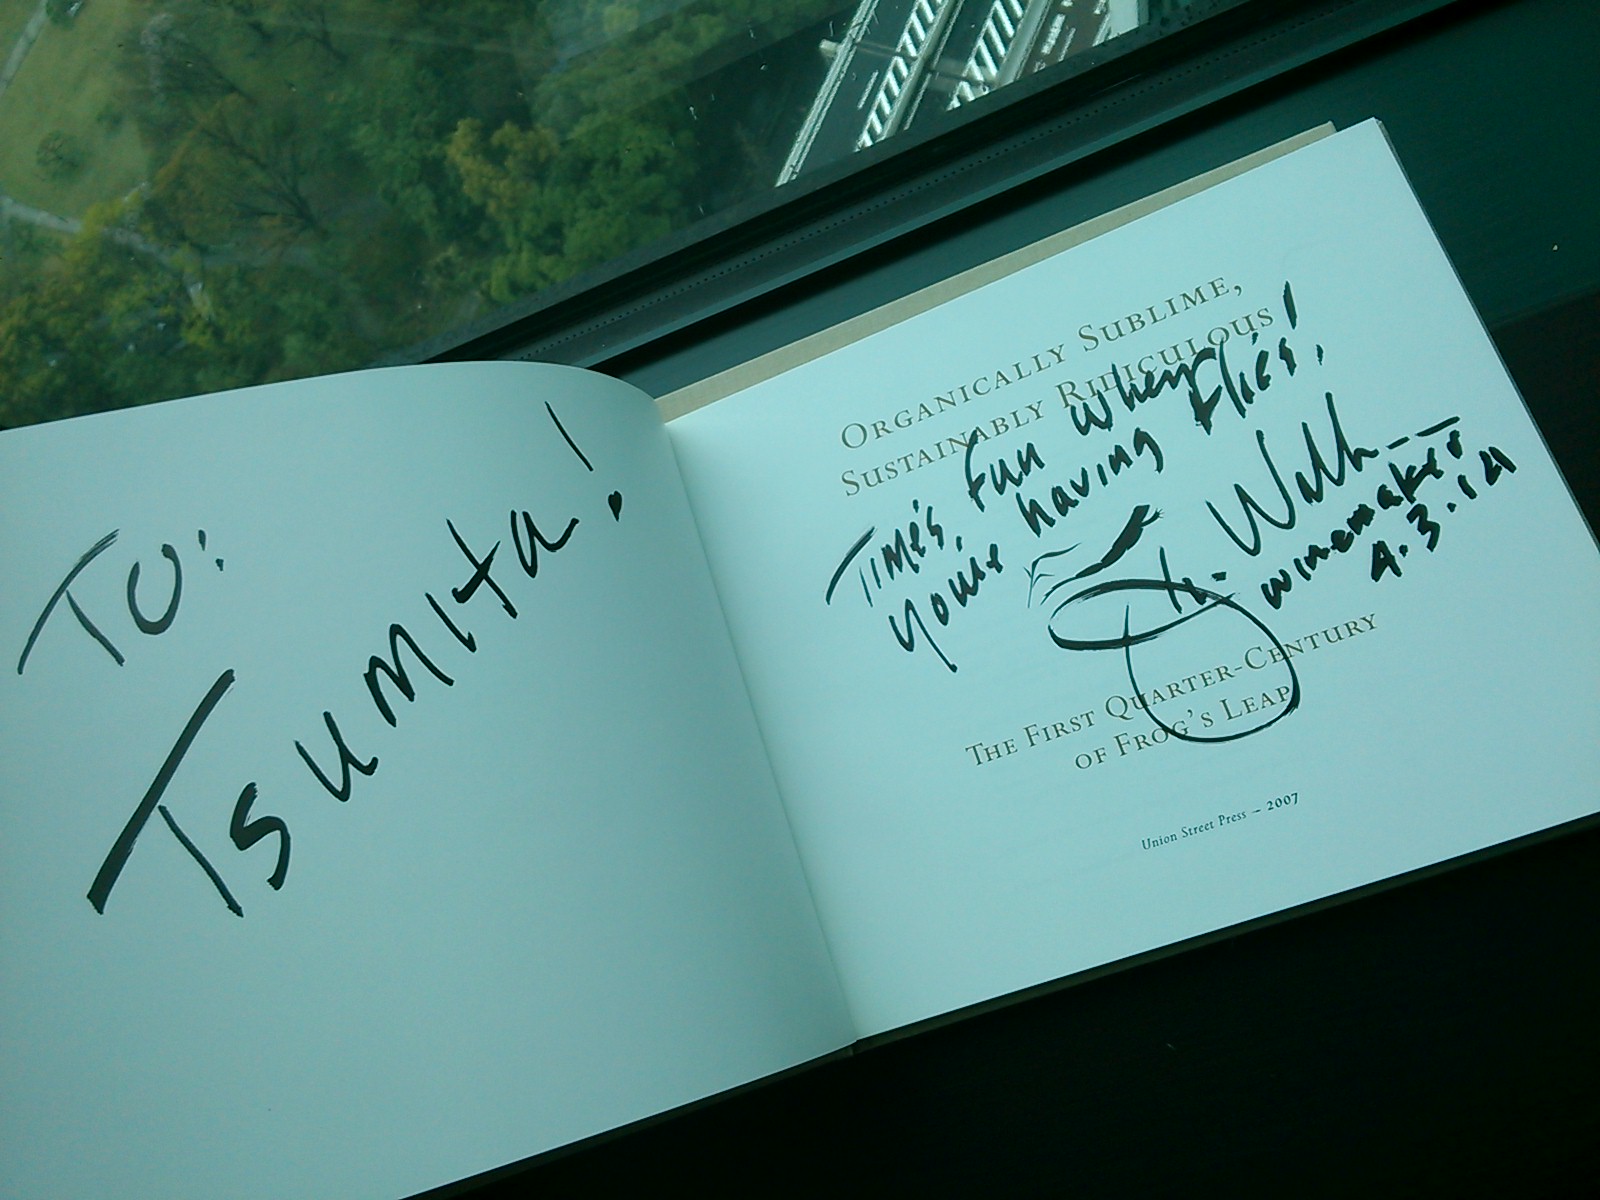 To:
Tsumita!
ORGANICALLY SUBLIME,
SUSTAINABLY RIDICULOUS
Time's fun when
your having flies!
winemaker
THE FIRST QUARTER-CENTURY
OF FROG'S LEAP
Union Street Press – 2007